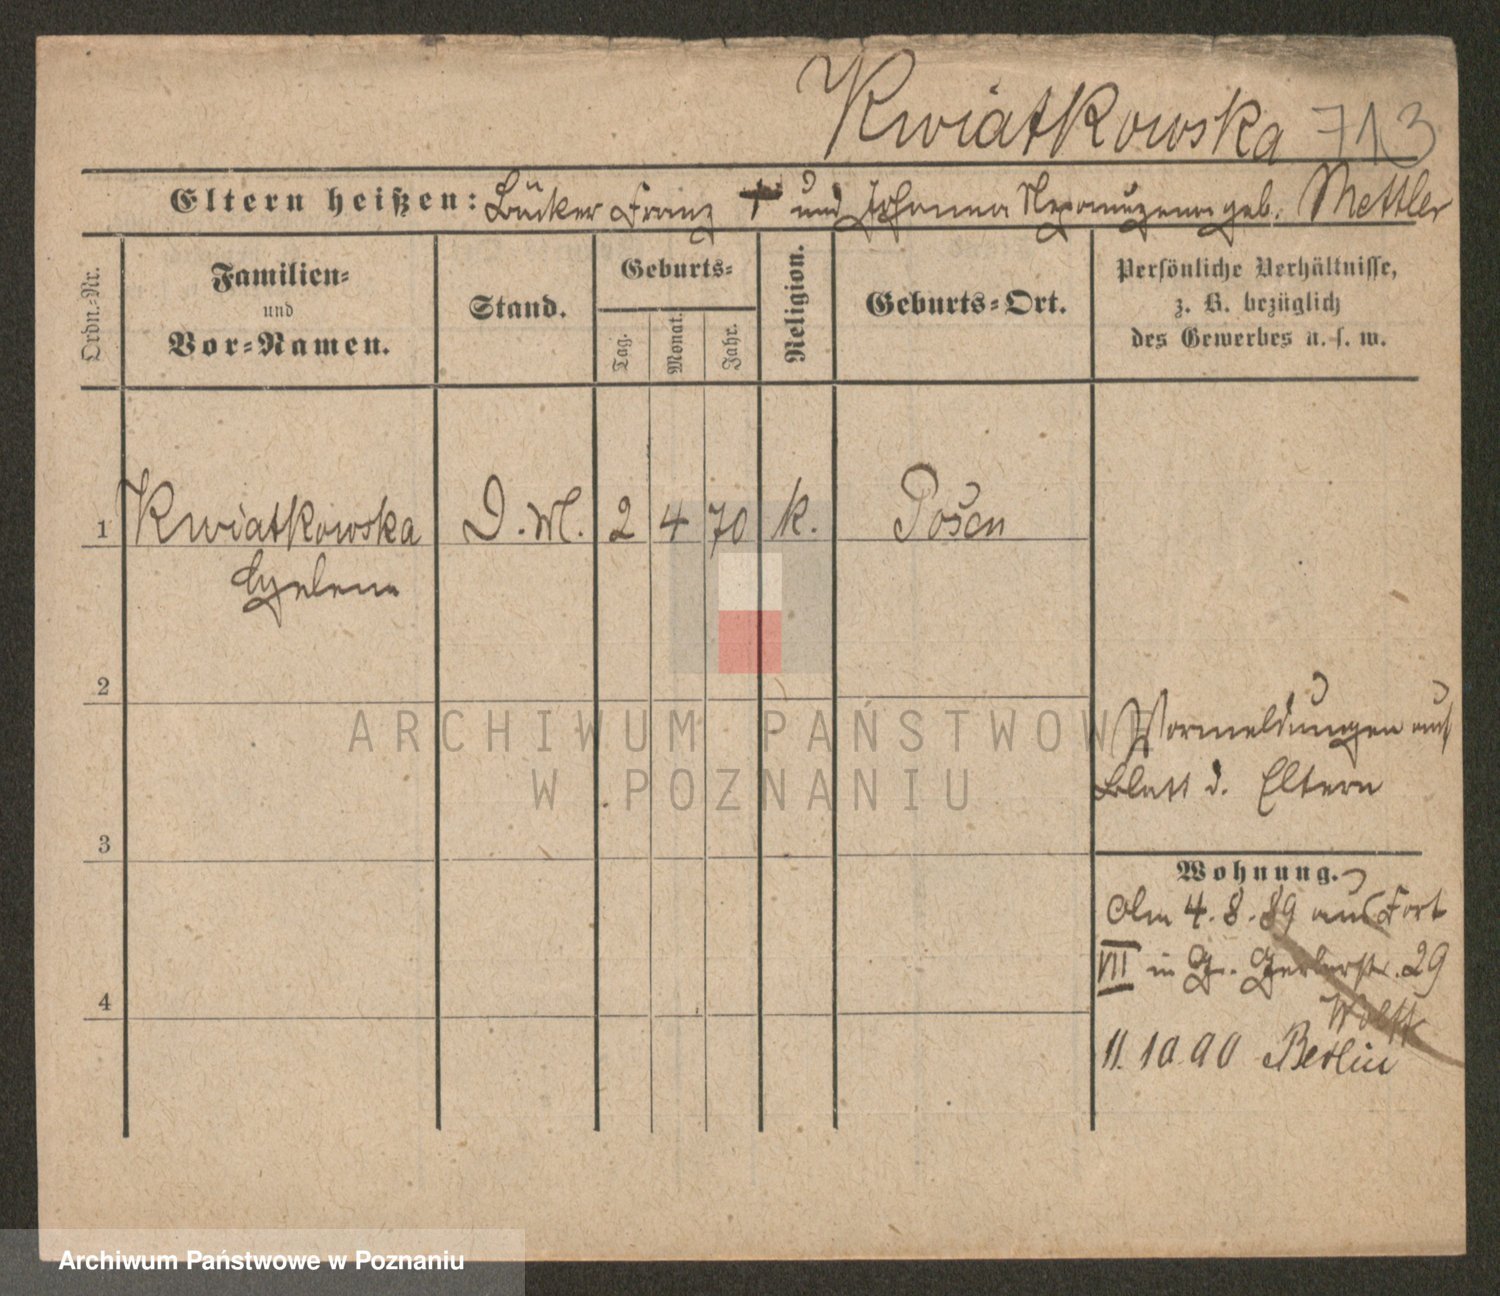 Kwiatkowska 713
Eltern heißen: Bäcker Franz † und Johanna Nepomuzena geb. Mettler
Ordn.-Nr.
Familien-
und
Vor-Namen.
Stand.
Geburts-
Tag.
Monat.
Jahr.
Religion.
Geburts-Ort.
Persönliche Verhältnisse,
z. B. bezüglich
des Gewerbes u. s. w.
1 Kwiatkowska D. M. 2 4 70 k. Posen
Helena
2
Vormeldungen auf
Blatt d. Eltern
3
Wohnung.
Am 4. 8. 89 aus Fort
VII in Gr. Gerberstr. 29
4
11. 10. 90 Berlin
ARCHIWUM PAŃSTWOWE
W POZNANIU
Archiwum Państwowe w Poznaniu